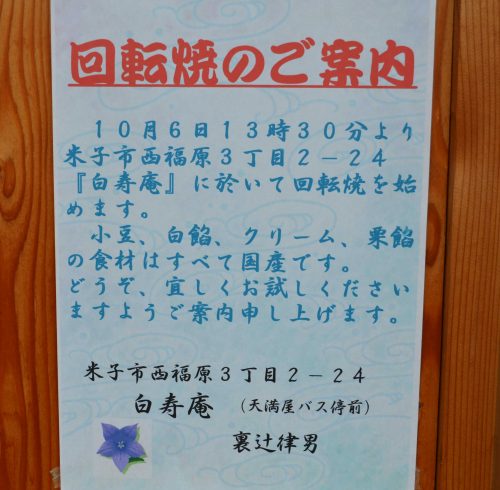 回転焼のご案内
１０月６日１３時３０分より
米子市西福原３丁目２－２４
『白寿庵』に於いて回転焼を始
めます。
小豆、白餡、クリーム、栗餡
の食材はすべて国産です。
どうぞ、宜しくお試しください
ますようご案内申し上げます。
米子市西福原３丁目２－２４
白寿庵 （天満屋バス停前）
裏辻律男